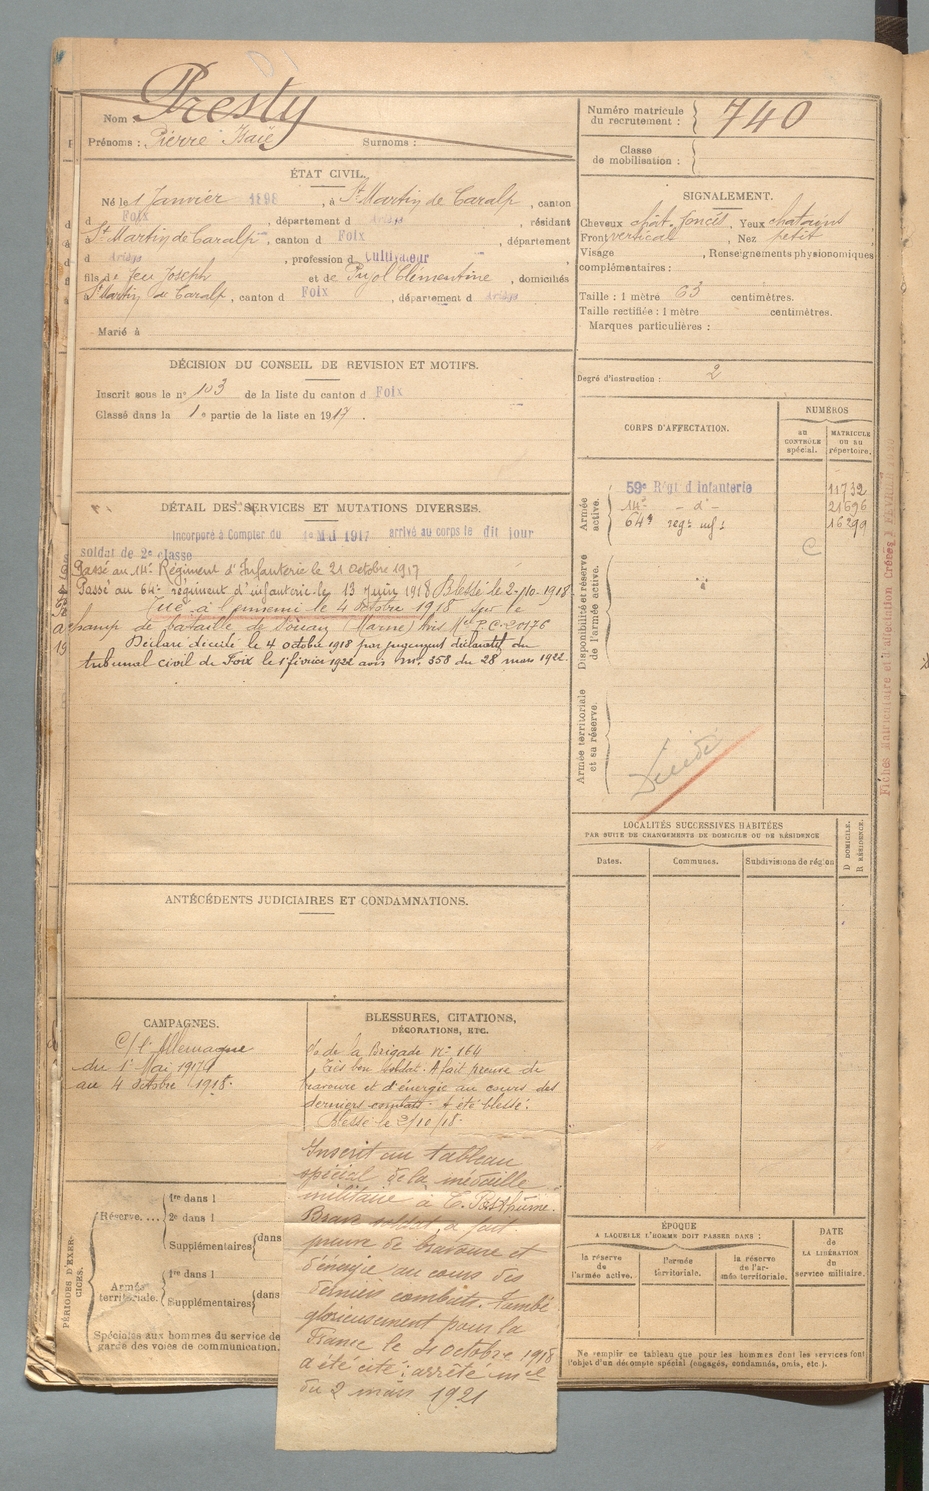 Nom : Presty
Prénoms : Pierre Surnoms :
ÉTAT CIVIL.
Né le 1 Janvier 1898, à St Martin de Caralp, canton
d Foix, département d Ariège, résidant
St Martin de Caralp, canton d Foix, département
d Ariège, profession d Cultivateur
fils de feu Joseph et de Pujol Clémentine, domiciliés
St Martin de Caralp, canton d Foix, département d Ariège
Marié à
DÉCISION DU CONSEIL DE REVISION ET MOTIFS.
Inscrit sous le no 103 de la liste du canton d Foix
Classé dans la 1e partie de la liste en 1917.
DÉTAIL DES SERVICES ET MUTATIONS DIVERSES.
Incorporé à Compter du 1e Mai 1917 arrivé au corps le dit jour
soldat de 2e classe
Passé au 14e Régiment d'Infanterie le 21 octobre 1917
Passé au 64e régiment d'infanterie le 13 Juin 1918 Blessé le 2-10-1918
Tué à l'ennemi le 4 octobre 1918 sur le
champ de bataille de (Marne) Avis Mel P.C. 20176
Déclaré décédé le 4 octobre 1918 par jugement déclaratif du
tribunal civil de Foix le 1er février 1922 avis m. 358 du 28 mars 1922.
ANTÉCÉDENTS JUDICIAIRES ET CONDAMNATIONS.
CAMPAGNES.
C/ l'Allemagne
du 1er Mai 1917
au 4 octobre 1918.
BLESSURES, CITATIONS,
DÉCORATIONS, ETC.
de la Brigade no 164
Très bon soldat. A fait preuve de
bravoure et d'énergie au cours des
derniers combats. A été blessé.
Blessé le 2/10/18.
Inscrit au tableau
spécial de la médaille
militaire à T. Posthume.
Brave soldat, a fait
preuve de bravoure et
d'énergie au cours des
derniers combats. Tombé
glorieusement pour la
France le 4 octobre 1918
a été cité : arrêté mel
du 2 mars 1921
PÉRIODES D'EXERCICES.
Réserve....
1re dans l
2e dans l
Supplémentaires dans
Armée territoriale.
1re dans l
Supplémentaires dans
Spéciales aux hommes du service de
garde des voies de communication.
Numéro matricule
du recrutement : 740
Classe
de mobilisation :
SIGNALEMENT.
Cheveux chât. foncés, Yeux chatains
Front vertical, Nez petit
Visage , Renseignements physionomiques
complémentaires :
Taille : 1 mètre 63 centimètres.
Taille rectifiée : 1 mètre centimètres.
Marques particulières :
Degré d'instruction : 2
CORPS D'AFFECTATION.
NUMÉROS
au CONTRÔLE spécial.
MATRICULE ou au répertoire.
Armée active.
59e Régt d'Infanterie 11732
14e - d° - 21696
64e regt inf 16299
C
Disponibilité et réserve de l'armée active.
Armée territoriale et sa réserve.
Décédé
LOCALITÉS SUCCESSIVES HABITÉES
PAR SUITE DE CHANGEMENTS DE DOMICILE OU DE RÉSIDENCE
Dates. Communes. Subdivisions de région
D DOMICILE.
R RÉSIDENCE.
ÉPOQUE
A LAQUELLE L'HOMME DOIT PASSER DANS :
la réserve de l'armée active.
l'armée territoriale.
la réserve de l'armée territoriale.
DATE
de
LA LIBÉRATION
du
service militaire.
Ne remplir ce tableau que pour les hommes dont les services font
l'objet d'un décompte spécial (engagés, condamnés, omis, etc.).